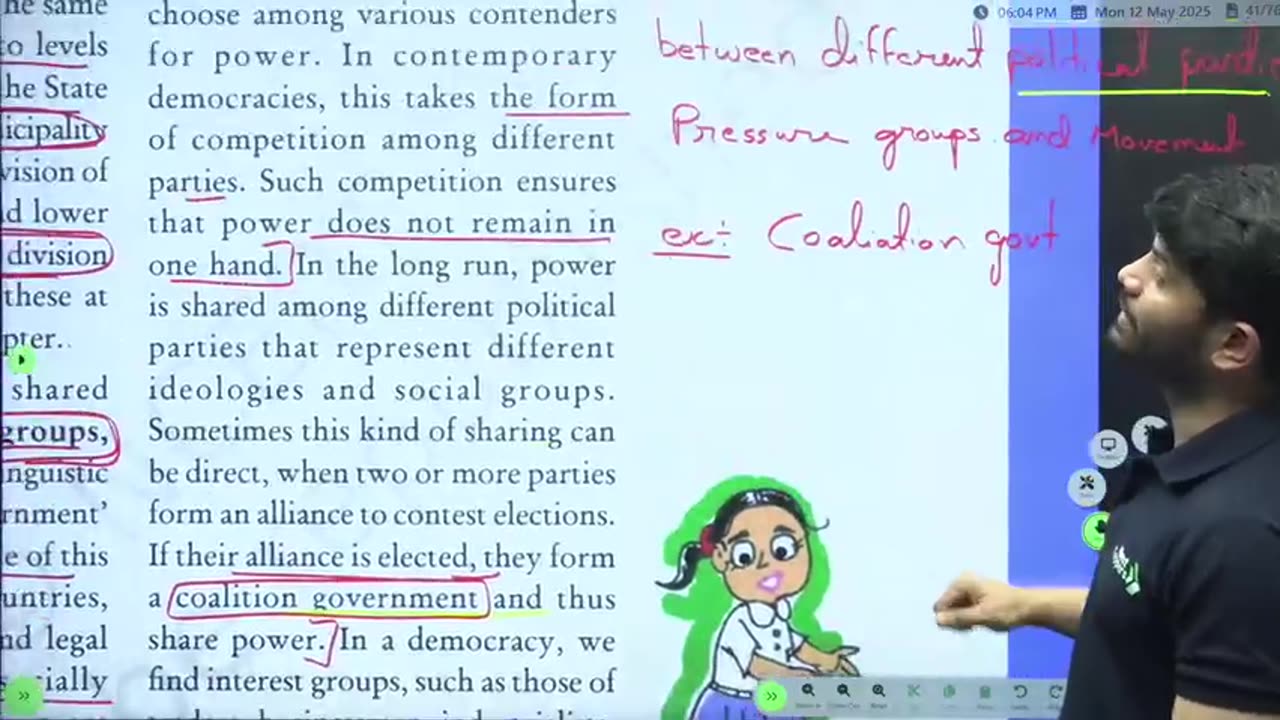 06:04 PM Mon 12 May 2025 41/76
he same
o levels
he State
icipality
vision of
d lower
division
these at
pter.
shared
groups,
nguistic
rnment'
e of this
untries,
nd legal
ially
choose among various contenders
for power. In contemporary
democracies, this takes the form
of competition among different
parties. Such competition ensures
that power does not remain in
one hand. In the long run, power
is shared among different political
parties that represent different
ideologies and social groups.
Sometimes this kind of sharing can
be direct, when two or more parties
form an alliance to contest elections.
If their alliance is elected, they form
a coalition government and thus
share power. In a democracy, we
find interest groups, such as those of
between different political
Pressure groups and Movement
ex: Coaliation govt